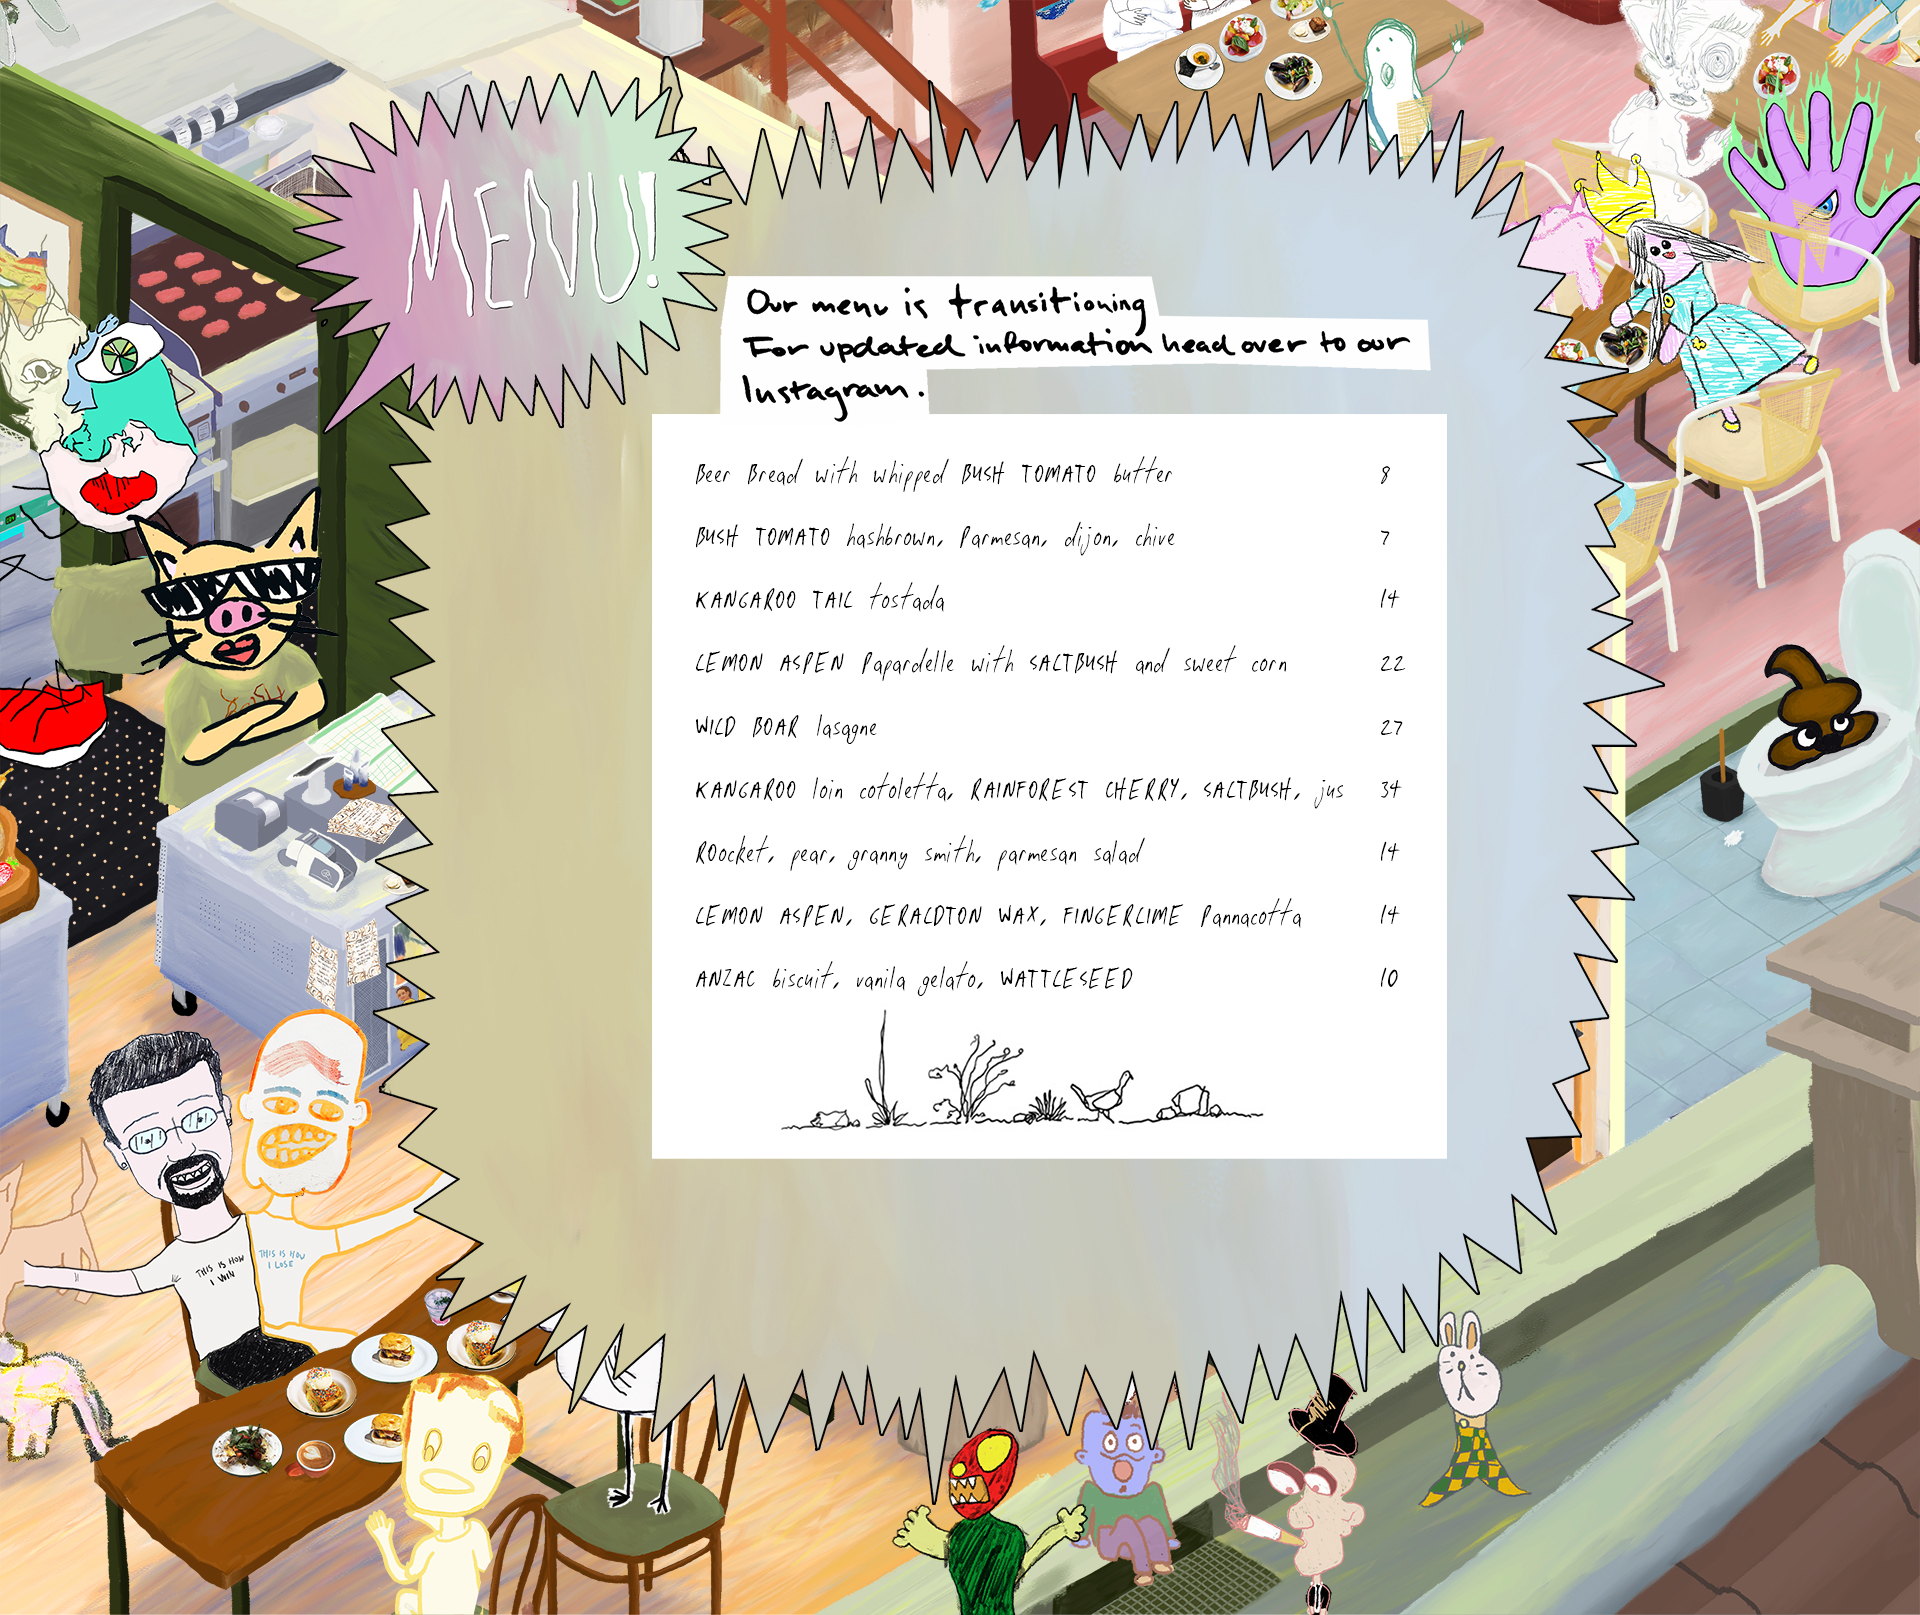 MENU!
Our menu is transitioning
For updated information head over to our
Instagram.
Beer Bread with whipped BUSH TOMATO butter 8
BUSH TOMATO hashbrown, Parmesan, dijon, chive 7
KANGAROO TAIL tostada 14
LEMON ASPEN Papardelle with SALTBUSH and sweet corn 22
WILD BOAR lasagne 27
KANGAROO loin cotoletta, RAINFOREST CHERRY, SALTBUSH, jus 34
ROocket, pear, granny smith, parmesan salad 14
LEMON ASPEN, GERALDTON WAX, FINGERLIME Pannacotta 14
ANZAC biscuit, vanila gelato, WATTLESEED 10
THIS IS HOW
I WIN
THIS IS HOW
I LOSE